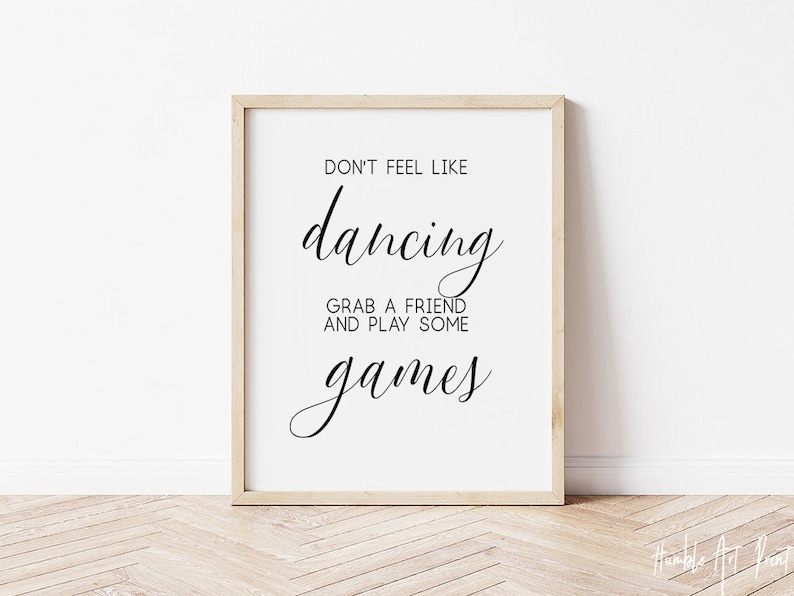 DON'T FEEL LIKE
dancing
GRAB A FRIEND
AND PLAY SOME
games
Humble Art Print